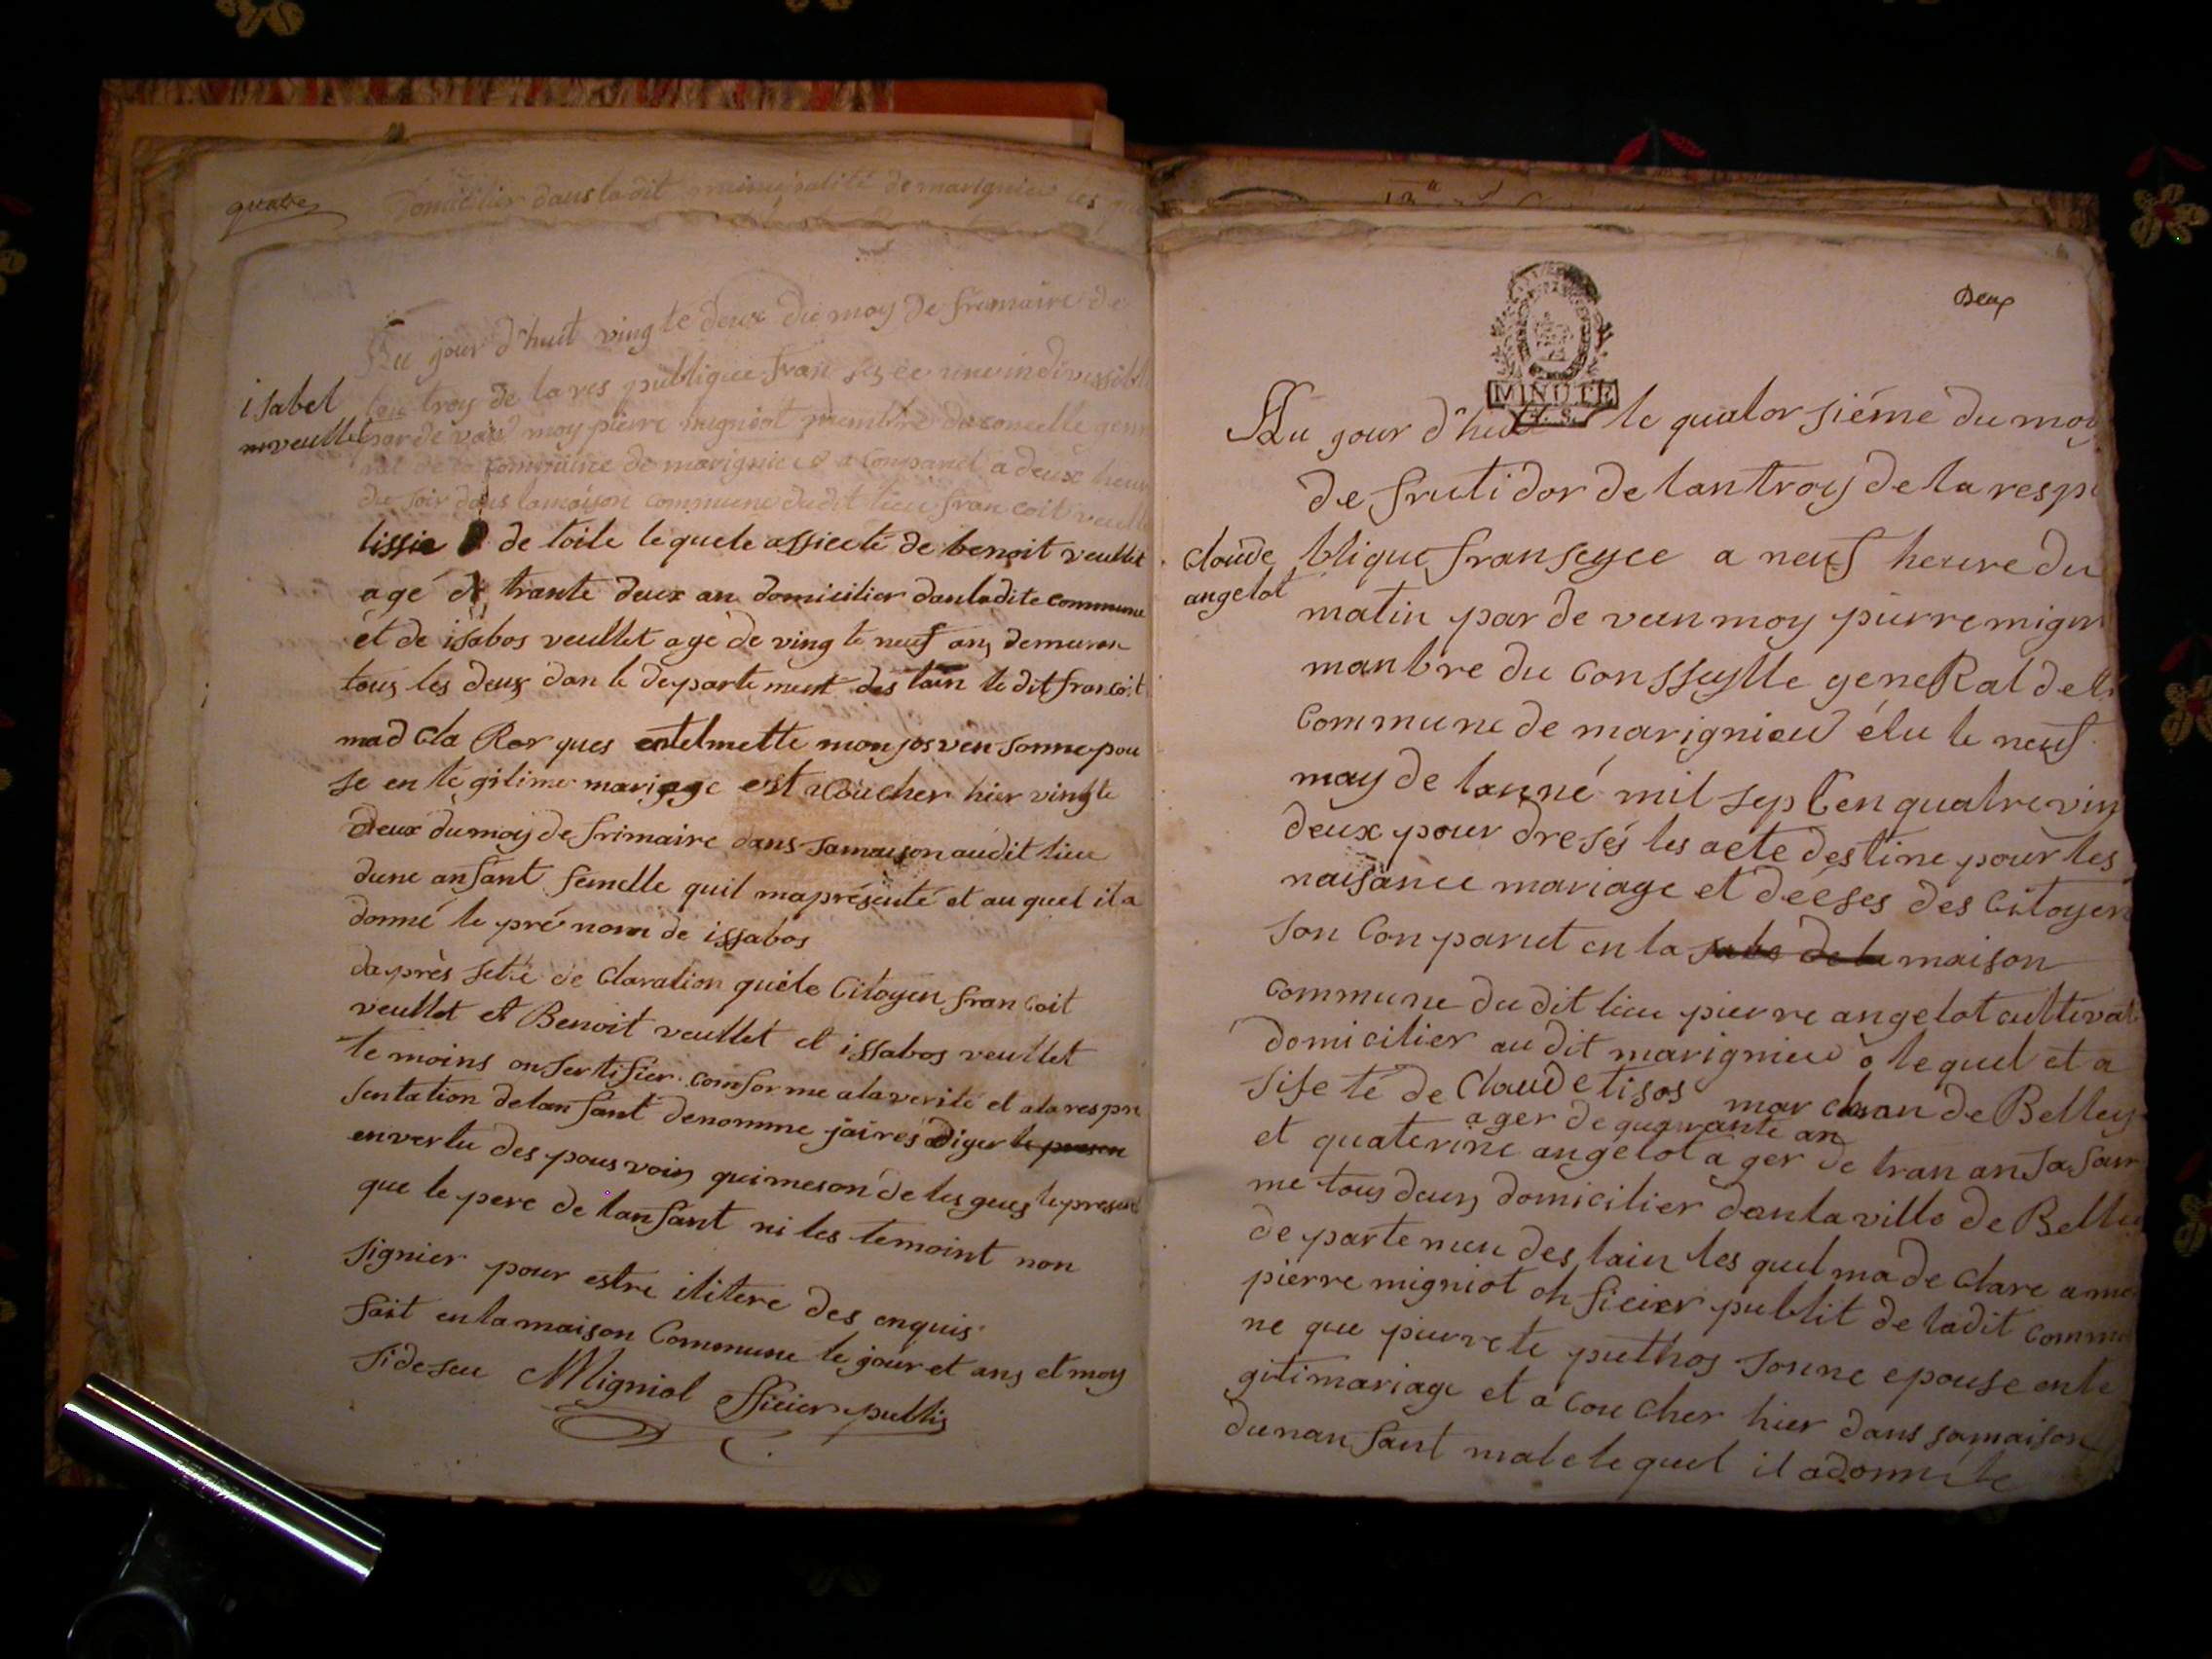 quatre
domicilier dans ladit municipalité de marignieu les
Au jour d'huit vingte deux du moy de frimaire de
isabel
lan troy de la res publique fran seyce une indivissible
veullet
par de vant moy pierre migniot membre du concelle gene
ral de la commune de marignieu a conparut a deux heur
du soir dans lamaison commune dudit lieu fran coit veulle
tissie de toile lequele assiceté de benoit veullet
agé de trante deux an domicilier danladite commune
et de isabos veullet age de vingte neuf ans demuran
tous les deux dan le departement des lain le dit francoit
mad cla Ror ques entelmette monjosven sonne pou
se en lé gitime mariage est a coucher hier vingte
deux dumoy de frimaire dans samaison audit lieu
dune ansant femelle quil maprésenté et au quel il a
donné le pré nom de issabos
daprès sete de claration quele Citoyen fran coit
veullet et Benoit veullet et issabos veullet
te moins on sertifier conforme alaverité et alarespre
sentation delan sant denomme jaires adiger le presen
envertu des pous voirs quimeson de les gues lepresent
que le pere de lansant ni les temoint non
signier pour estre ilitere des enquis
fait enlamaison Commune le jour et ans et moy
side seu Migniot officier publis
Deux
MINUTE
Au jour d'huit le quator siéme du moy
de frutidor de lantroy de la resp
claude
blique franseyce a neuf heure du
angelot
matin par de veen moy pierre mign
manbre du conssuylle geneRal dela
commune de marignieu élu le neuf
may de lanné mil sept cen quatre vin
deux pour dresés les acte destine pour les
naisance mariage et décses des Citoyen
son conparut en la sale de la maison
commune du dit lieu pierre angelot cultivat
domicilier audit marignieu lequel et a
sise té de claude tisos mar chan de Belley
ager de quarante an
et quaterine angelot a ger de tran an sa fam
me tous deux domicilier danla ville de Belley
de parte men des lain les quel ma de clare a mo
pierre migniot oh ficier publit de ladit comm
ne que pierrete puthos sonne epouse en le
gitimariage et a cou cher hier dans samaison
dunan sant male le quel il adonné le